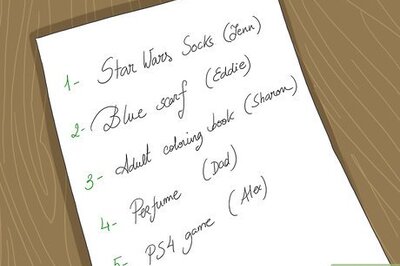 1- Star Wars Socks (Jenn)
2- Blue scarf (Eddie)
3- Adult coloring book (Sharon)
4- Perfume (Dad)
5- PS4 game (Alex)